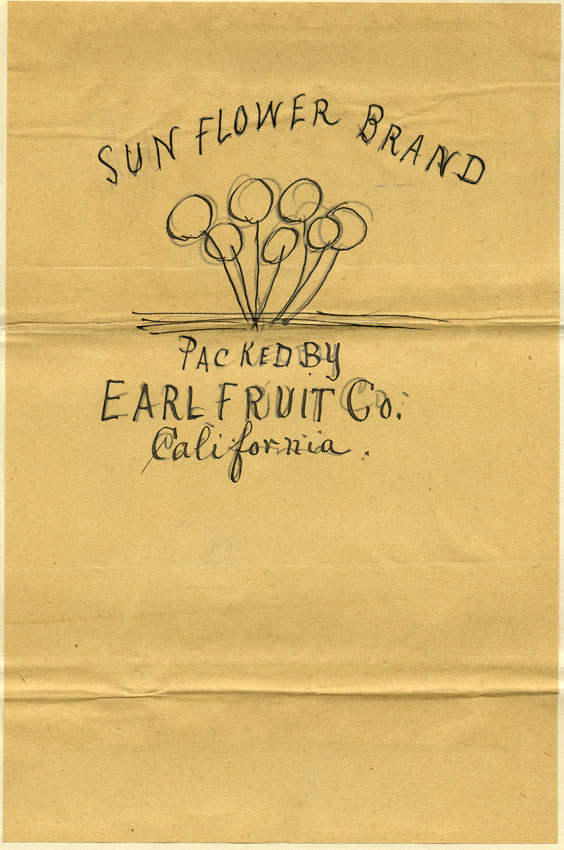 SUN FLOWER BRAND
PACKED BY
EARL FRUIT Co.
California.